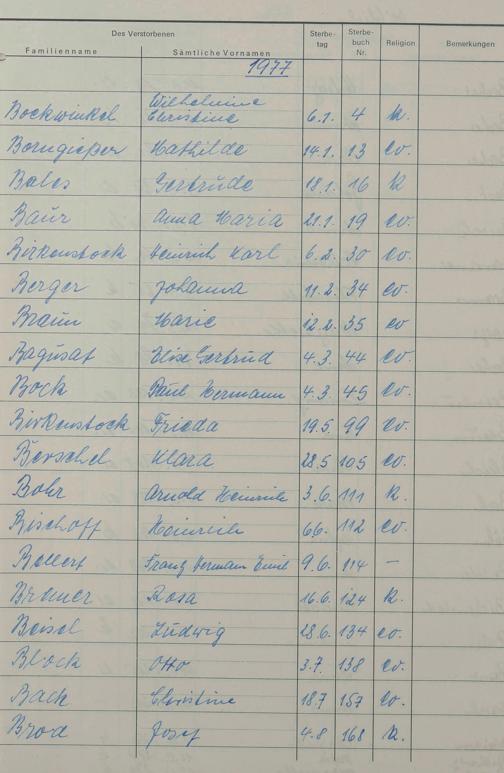 Des Verstorbenen Sterbe- Sterbe- Religion Bemerkungen
Familienname Sämtliche Vornamen tag buch
Nr.
1977
Wilhelmine
Bockwinkel Christine 6.1. 4 k.
Borngießer Mathilde 14.1. 13 ev.
Gertrude 18.1. 16 k
Baur Anna Maria 21.1. 19 ev.
Birkenstock Heinrich Karl 6.2. 30 ev.
Berger Johanna 11.2. 34 ev.
Braun Marie 12.2. 35 ev
Bagusat Elise Gertrud 4.3. 44 ev.
Bock Paul Hermann 4.3. 45 ev.
Birkenstock Frieda 19.5. 99 ev.
Berschel Klara 28.5 105 ev.
Bohr Arnold Heinrich 3.6. 111 k.
Bischoff Heinrich 6.6. 112 ev.
Franz Hermann Emil 9.6. 114 —
Bremer Rosa 16.6. 124 k.
Beisel Ludwig 28.6. 134 ev.
Block Otto 3.7. 138 ev.
Back Christine 18.7 157 ev.
Brod Josef 4.8 168 k.